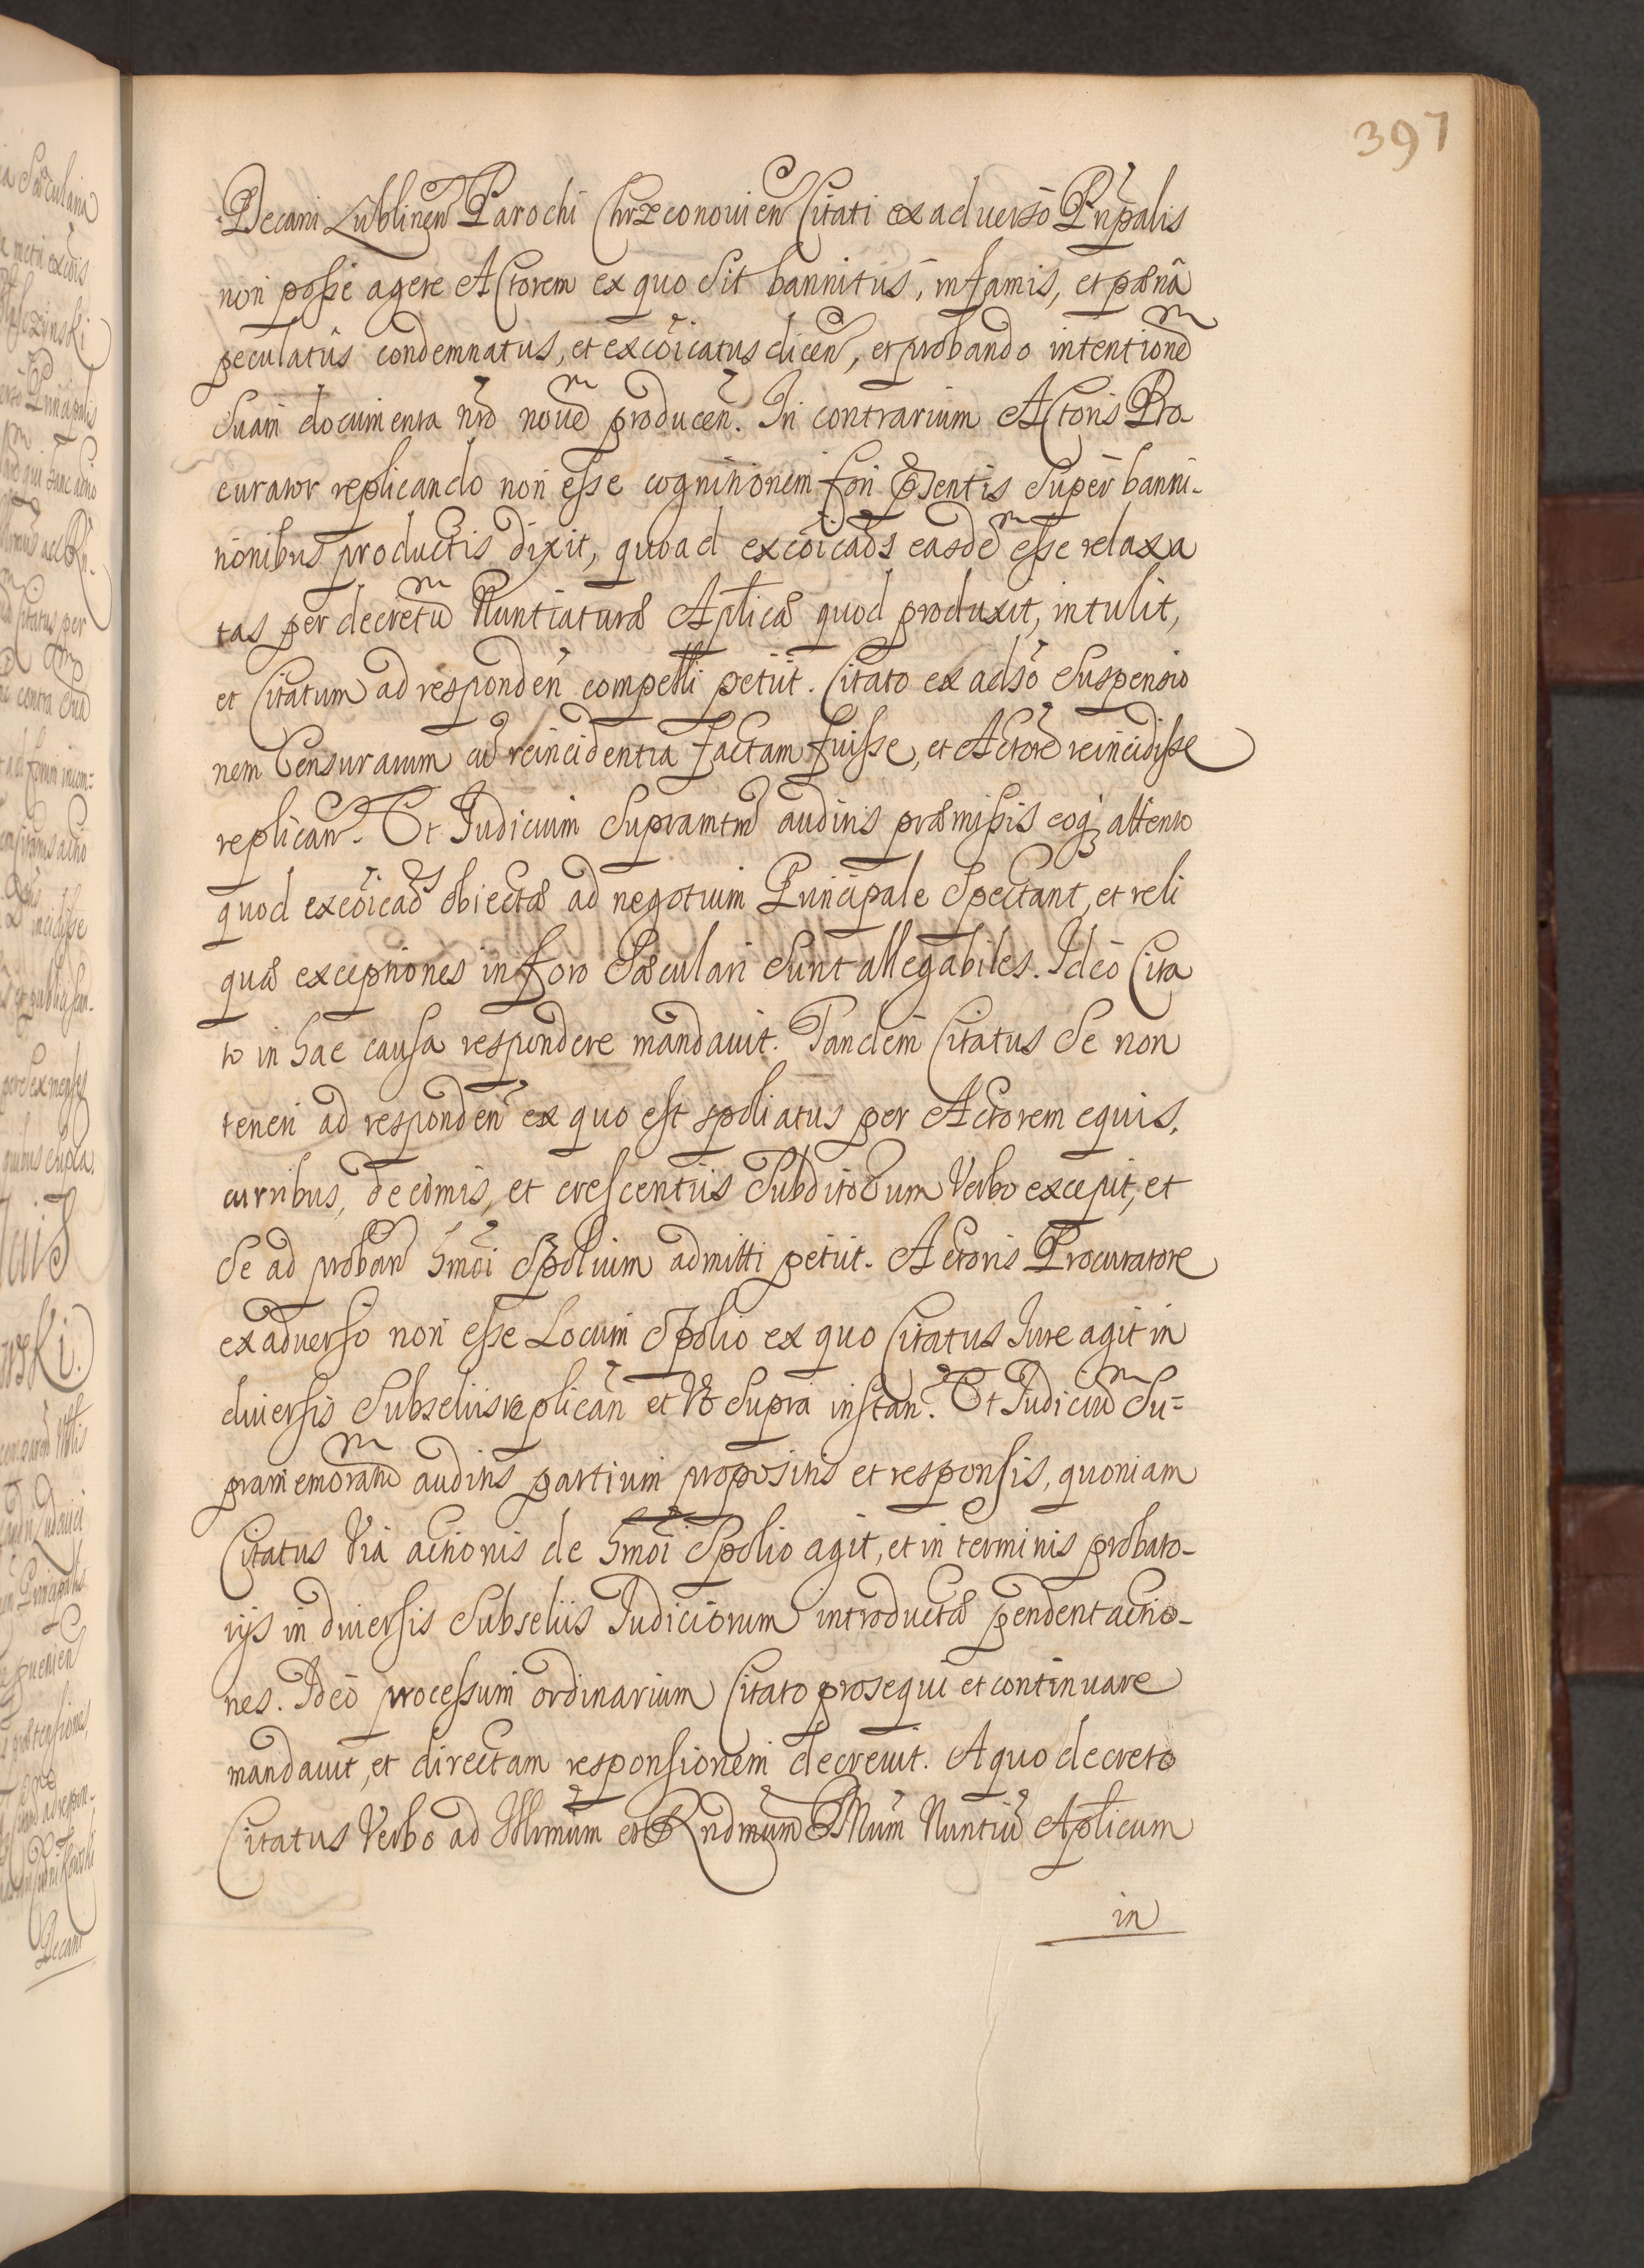 397
Decani Lublinen Parochi Chrzconovien Citati ex adverso Prnpalis
non posse agere Actorem ex quo sit bannitus, infamis, et pæna
peculatus condemnatus, et excoicatus dicen, et probando intentionem
suam documenta nro novem producen. In contrarium Actoris Pro
curator replicando non esse cognitionem fori psentis super banni-
tionibus productis dixit, quoad excoicaoes easdem esse relaxa
tas per decretum Nuntiaturæ Aplicæ quod produxit, intulit,
et Citatum ad responden compelli petiit. Citato ex adso suspensio
nem Censurarum ad reincidentia factam fuisse, et Actore reincidisse
replican. Et Judicium supramtm auditis præmissis eoq attento
quod excoicaoes obiectæ ad negotium Principale spectant, et reli
quæ exceptiones in foro Sæculari sunt allegabiles. Ideo Cita
to in hac causa respondere mandavit. Tandem Citatus se non
teneri ad responden ex quo est spoliatus per Actorem equis,
curribus, decimis, et crescentiis Subditorum Verbo excepit, et
se ad proban hmoi Spolium admitti petiit. Actoris Procuratore
ex adverso non esse Locum Spolio ex quo Citatus Iure agit in
diversis Subseliis replican et Vt Supra instan. Et Judicium Su=
pramemoratum auditis partium propositis et responsis, quoniam
Citatus Via actionis de hmoi Spolio agit, et in terminis probato-
rijs in diversis Subseliis Judiciorum introductæ pendent actio-
nes. Ideo processum ordinarium Citato prosequi et continuare
mandavit, et directam responsionem decrevit. A quo decreto
Citatus Verbo ad Illrmum et Rndmum Dnum Nuntiu Aplicum
in